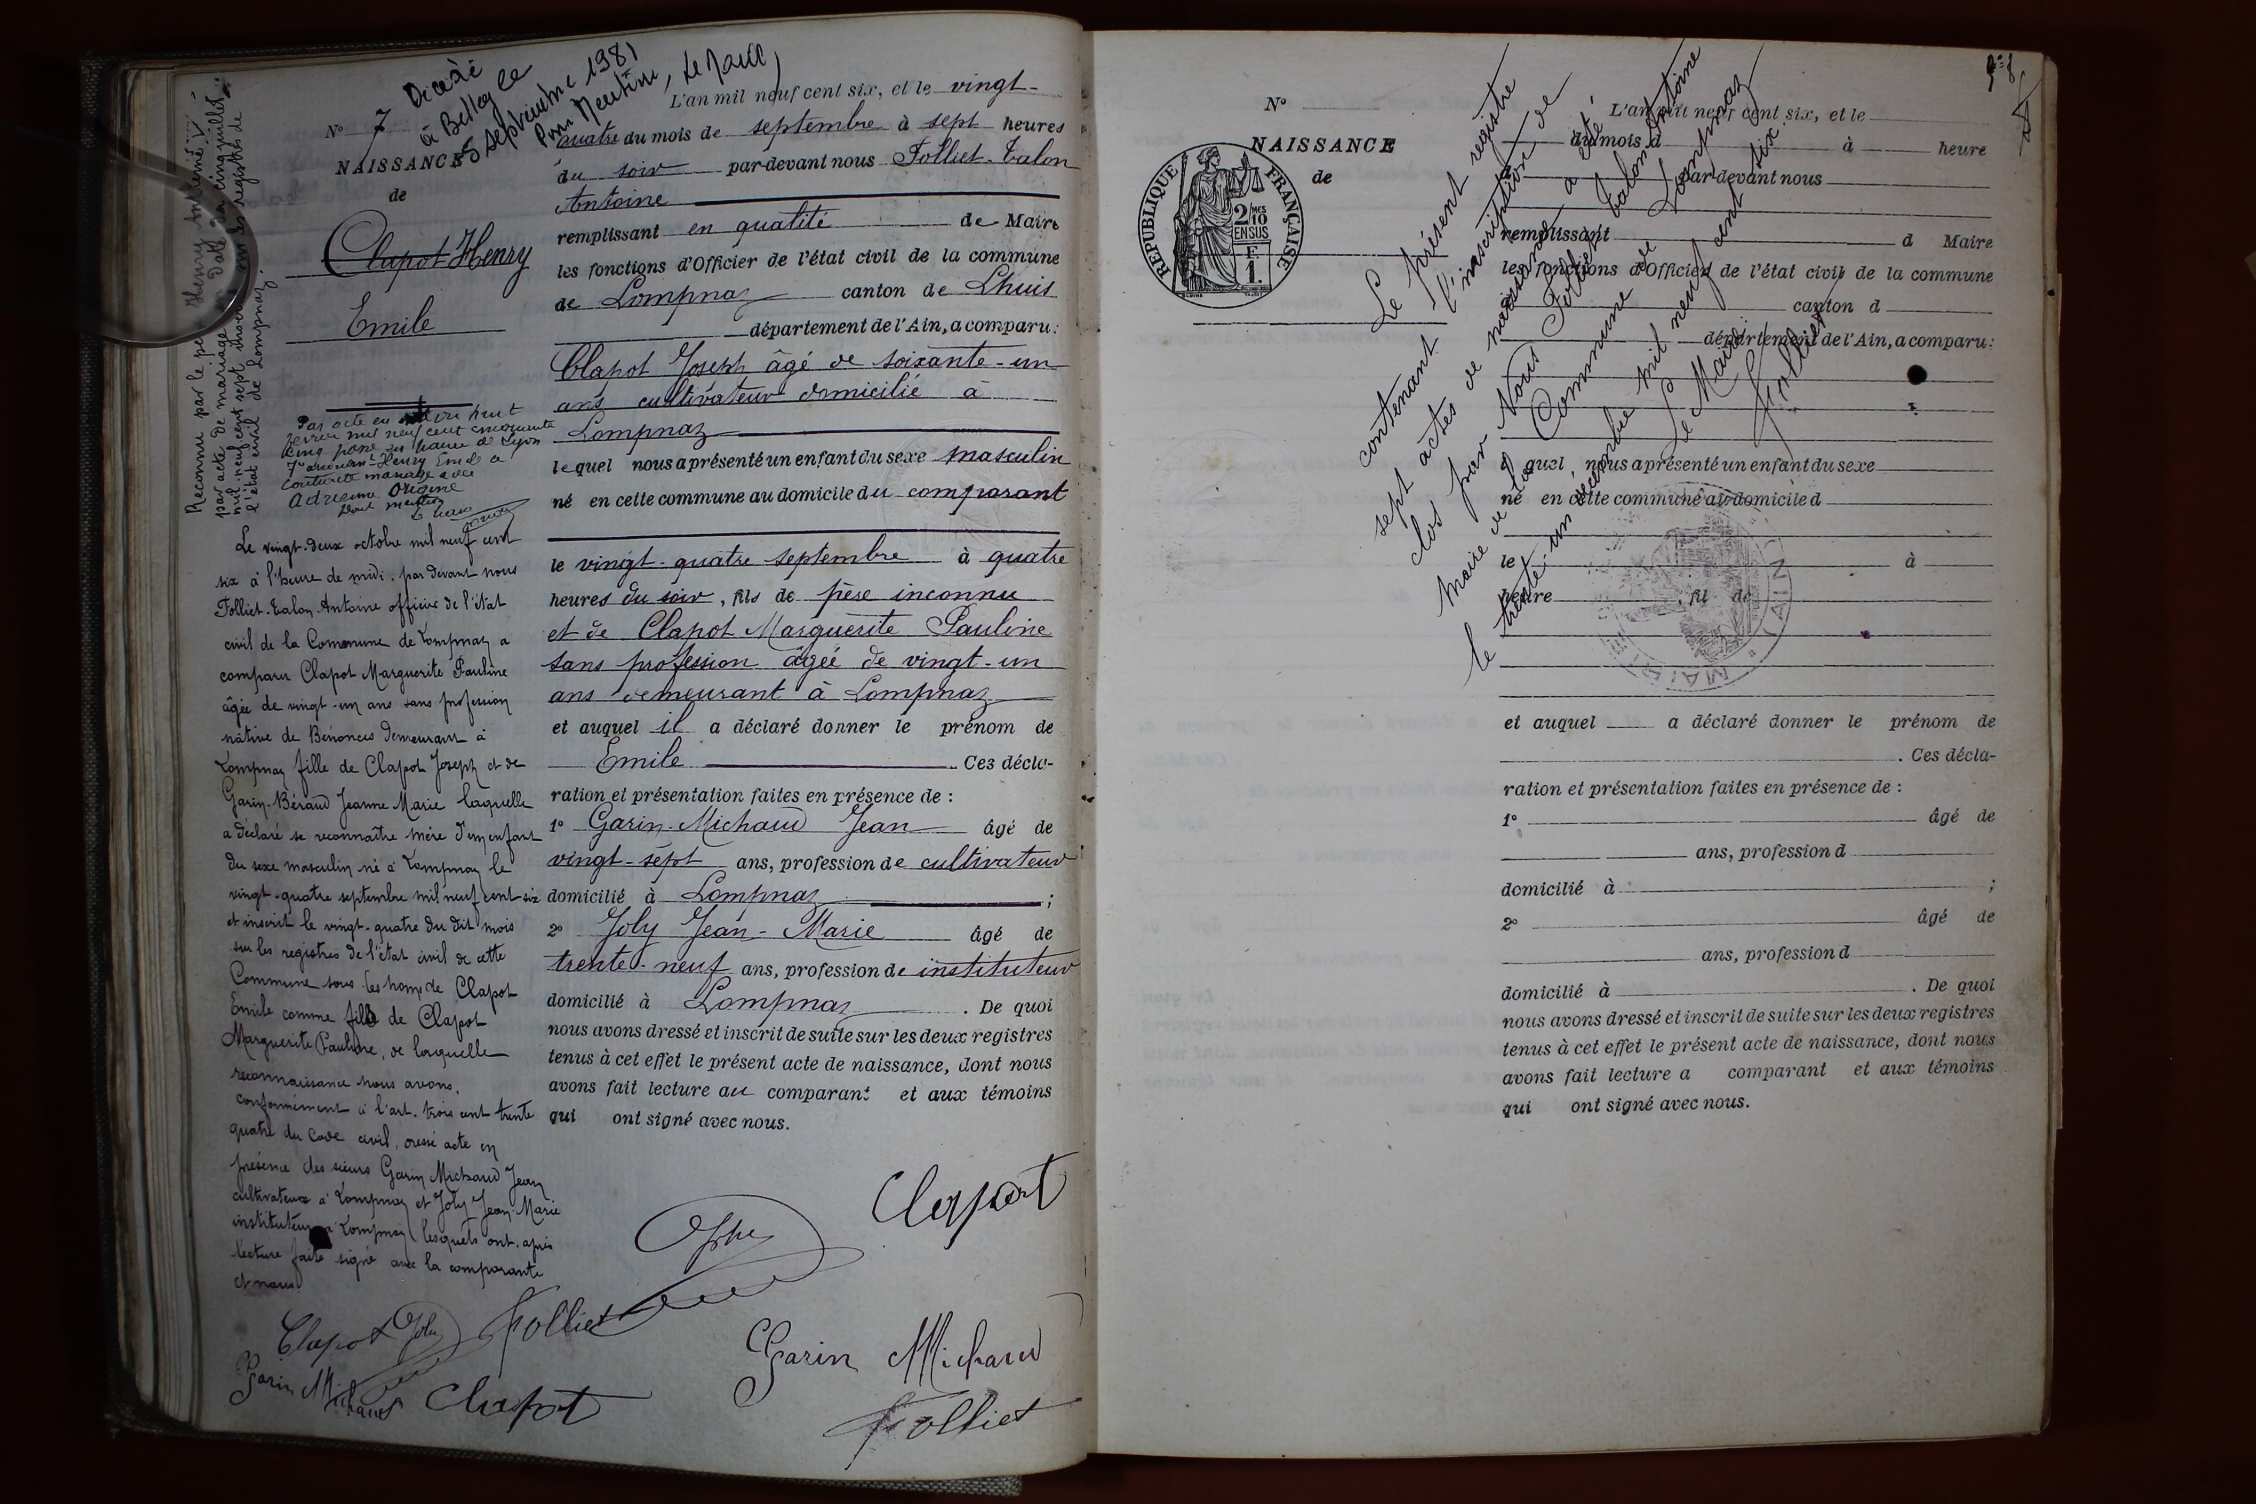 Décédé
à Belley le
5 septembre 1981
Pour Mention, Le Maire
N° 7
NAISSANCE
de
Clapot Henry
Emile
Reconnu par le père Henry
par acte de mariage en date
mil neuf cent sept inscrit sur les registres de
l'état civil de Lompnaz.
Par acte en date du huit
février mil neuf cent cinquante
cinq passé en mairie de Lyon
7e arrondissement Henry Emile a
contracté mariage avec
Adrienne Origine
Dont mention
Le vingt-deux octobre mil neuf cent
six à l'heure de midi, par devant nous
Folliet-Talon Antoine officier de l'état
civil de la Commune de Lompnaz a
comparu Clapot Marguerite Pauline
âgée de vingt-un ans sans profession
native de Bénonces demeurant à
Lompnaz fille de Clapot Joseph et de
Garin-Béraud Jeanne Marie laquelle
a déclaré se reconnaître mère d'un enfant
du sexe masculin né à Lompnaz le
vingt-quatre septembre mil neuf cent six
et inscrit le vingt-quatre du dit mois
sur les registres de l'état civil de cette
Commune sous les noms de Clapot
Emile comme fils de Clapot
Marguerite Pauline, de laquelle
reconnaissance nous avons,
conformément à l'art. trois cent trente
quatre du Code civil, dressé acte en
présence des sieurs Garin Michaud Jean
cultivateur à Lompnaz et Joly Jean Marie
instituteur à Lompnaz lesquels ont, après
lecture faite signé avec la comparante
et nous
Clapot Joly Folliet
Garin Michaud Clapot
L'an mil neuf cent six, et le vingt-
quatre du mois de septembre à sept heures
du soir par-devant nous Folliet-Talon
Antoine
remplissant en qualité de Maire
les fonctions d'Officier de l'état civil de la commune
de Lompnaz canton de Lhuis
département de l'Ain, a comparu:
Clapot Joseph âgé de soixante-un
ans cultivateur domicilié à
Lompnaz
lequel nous a présenté un enfant du sexe masculin
né en cette commune au domicile du comparant
le vingt-quatre septembre à quatre
heures du soir, fils de père inconnu
et de Clapot Marguerite Pauline
sans profession âgée de vingt-un
ans demeurant à Lompnaz
et auquel il a déclaré donner le prénom de
Emile . Ces décla-
ration et présentation faites en présence de :
1° Garin-Michaud Jean âgé de
vingt-sept ans, profession de cultivateur
domicilié à Lompnaz ;
2° Joly Jean-Marie âgé de
trente-neuf ans, profession de instituteur
domicilié à Lompnaz . De quoi
nous avons dressé et inscrit de suite sur les deux registres
tenus à cet effet le présent acte de naissance, dont nous
avons fait lecture au comparant et aux témoins
qui ont signé avec nous.
Clapot
Joly
Garin Michaud
Folliet
N°
NAISSANCE
de
RÉPUBLIQUE FRANÇAISE
2/10 MES
EN SUS
F
1
Le présent registre
contenant l'inscription de
sept actes de naissance a été
clos par Nous Folliet Talon Antoine
Maire de la Commune de Lompnaz
le trente-un décembre mil neuf cent six.
Le Maire
Folliet
L'an mil neuf cent six, et le
du mois d à heure
par-devant nous
remplissant d Maire
les fonctions d'Officier de l'état civil de la commune
canton d
département de l'Ain, a comparu:
quel nous a présenté un enfant du sexe
né en cette commune au domicile d
le à
heure , fil de
MAIRIE
(AIN)
et auquel a déclaré donner le prénom de
. Ces décla-
ration et présentation faites en présence de :
1° âgé de
ans, profession d
domicilié à ;
2° âgé de
ans, profession d
domicilié à . De quoi
nous avons dressé et inscrit de suite sur les deux registres
tenus à cet effet le présent acte de naissance, dont nous
avons fait lecture a comparant et aux témoins
qui ont signé avec nous.